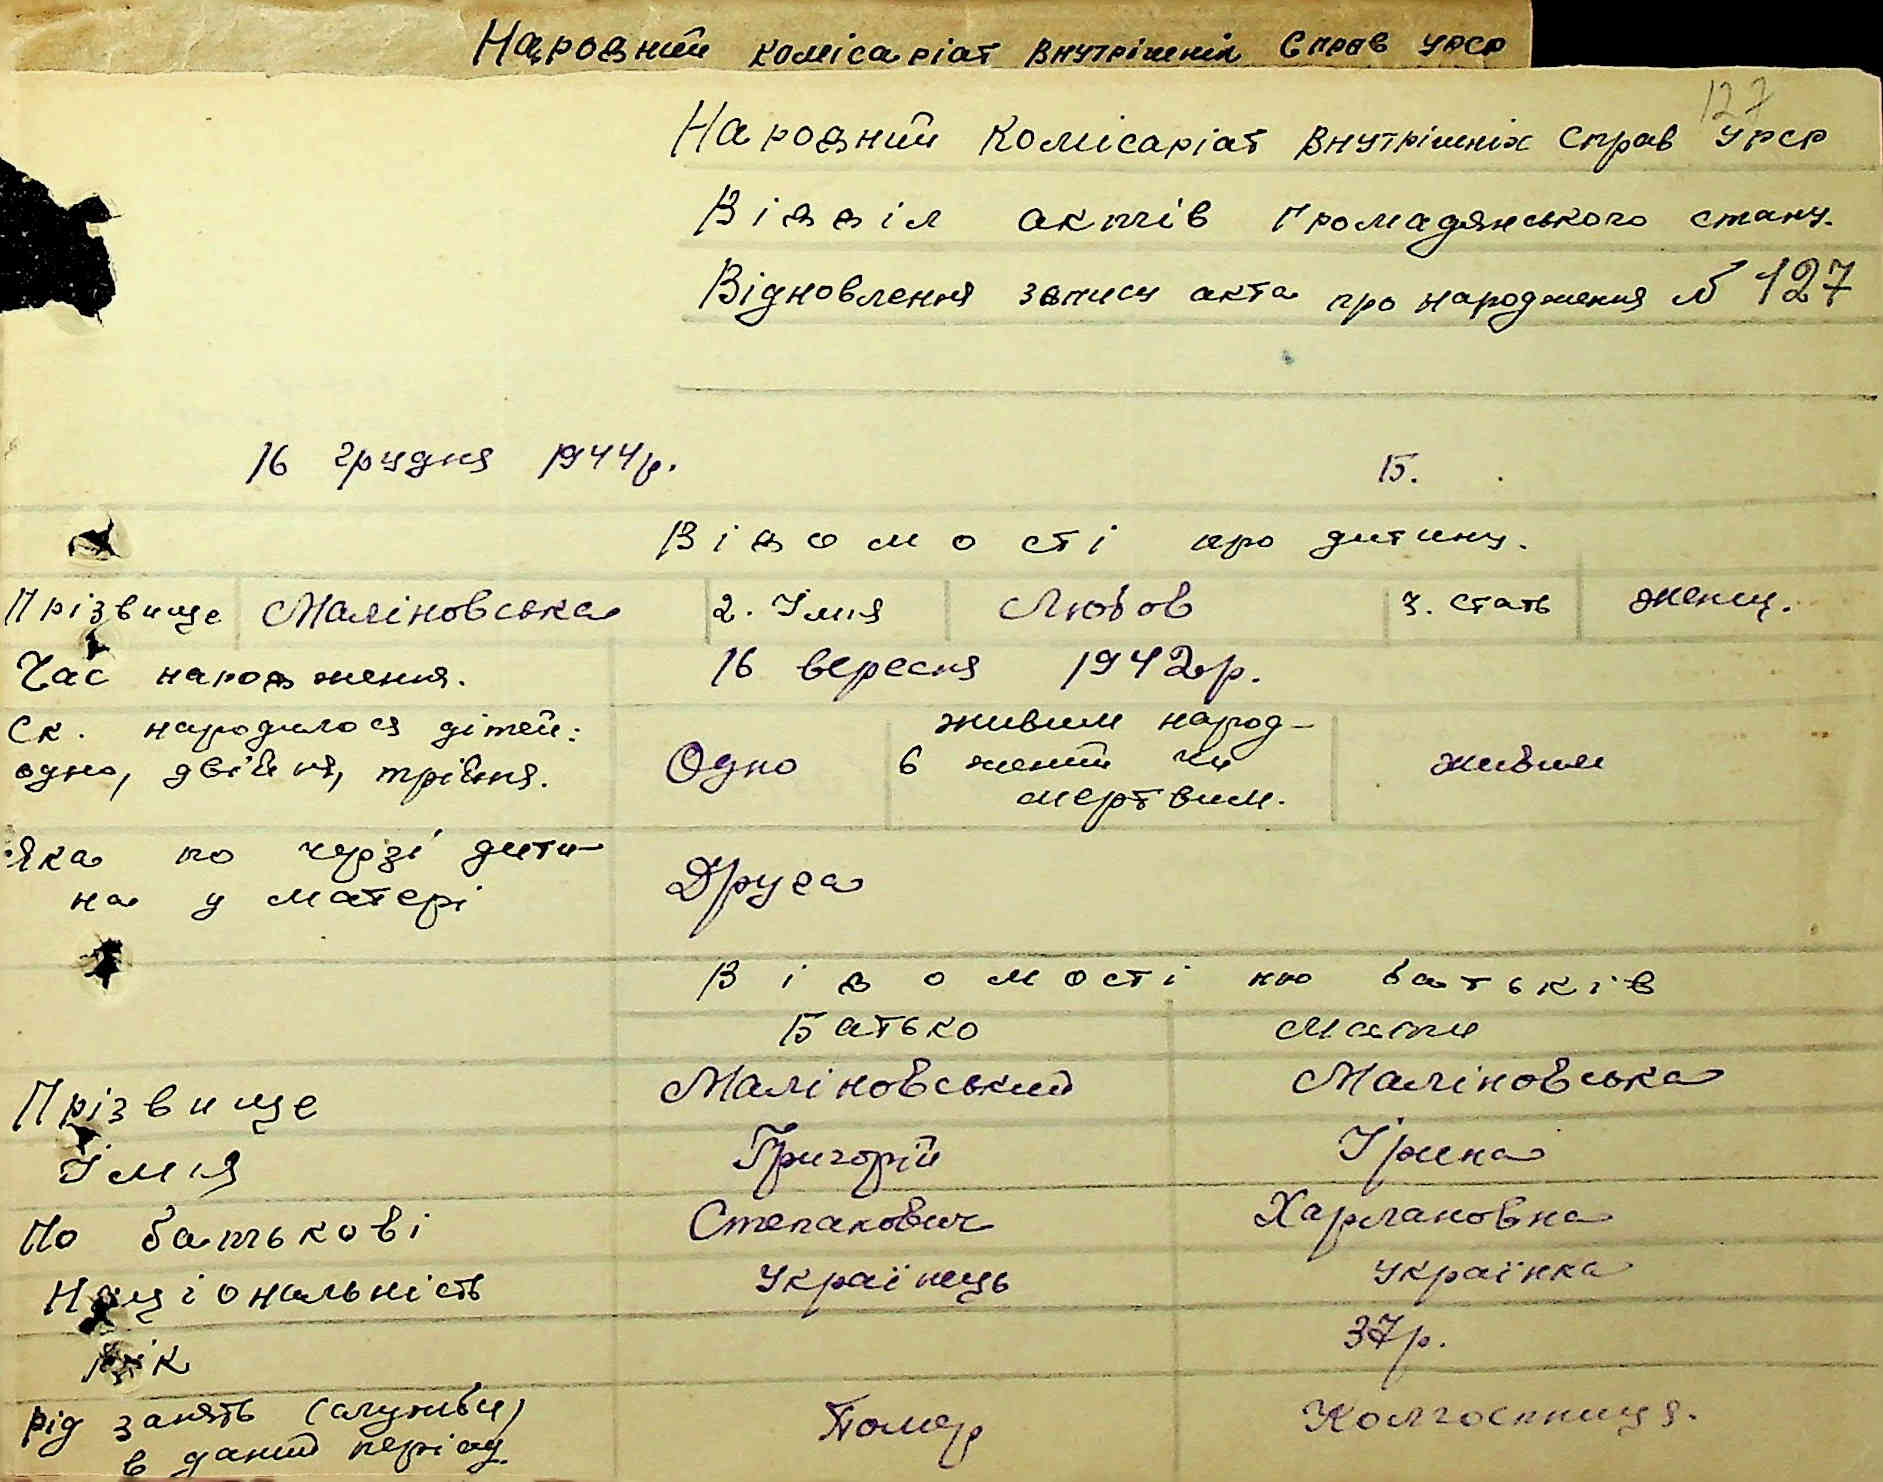 Народний комісаріат внутрішніх Справ УРСР
127
Народний Комісаріат внутрішніх Справ УРСР
Відділ актів Громадянського стану.
Відновлення запису акта про народження № 127
16 грудня 1944 р. Б.
Відомості про дитину.
Прізвище Маліновська 2. Імія Любов 3. стать женщ.
Час народження. 16 вересня 1942 р.
Ск. народилося дітей: живим народ-
одно, двійня, трійня. Одно 6 жений чи живим
мертвим.
Яка по черзі дити-
на у матері Друга
Відомості про батьків
Батько Мати
Прізвище Маліновський Маліновська
Імія Григорій Ірина
По батькові Степанович Харлановна
Національність Українець українка
Вік 37 р.
Рід занять (служби) Помер Колгоспниця.
в даний період